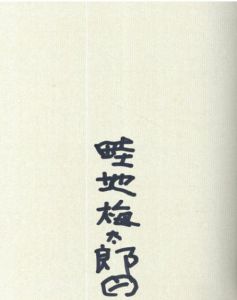 畦地梅太郎